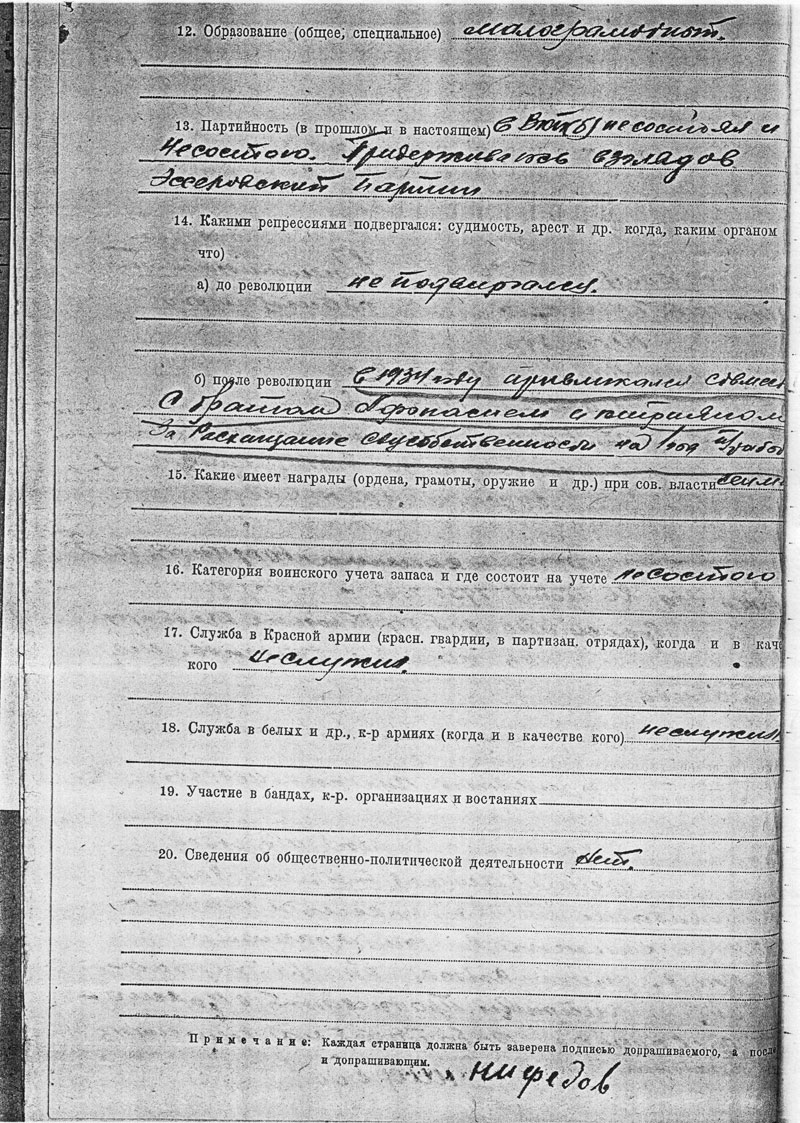 12. Образование (общее, специальное) малограмотный.
13. Партийность (в прошлом и в настоящем) в Вкп(б) не состоял и
не состою. Придерживаюсь взглядов
Эссеровский Партии
14. Какими репрессиями подвергался: судимость, арест и др. когда, каким органом
что)
а) до революции не подвиргался.
б) после революции в 1934 году привликался совмес
с братом Афонасием и
За Расхищание на 1 год
15. Какие имеет награды (ордена, грамоты, оружие и др.) при сов. власти
16. Категория воинского учета запаса и где состоит на учете не состою
17. Служба в Красной армии (красн. гвардии, в партизан. отрядах), когда и в каче
кого не служил.
18. Служба в белых и др., к-р армиях (когда и в качестве кого) не служил
19. Участие в бандах, к-р. организациях и востаниях
20. Сведения об общественно-политической деятельности нет.
Примечание: Каждая страница должна быть заверена подписью допрашиваемого, а посл
и допрашивающим.
Нифедов